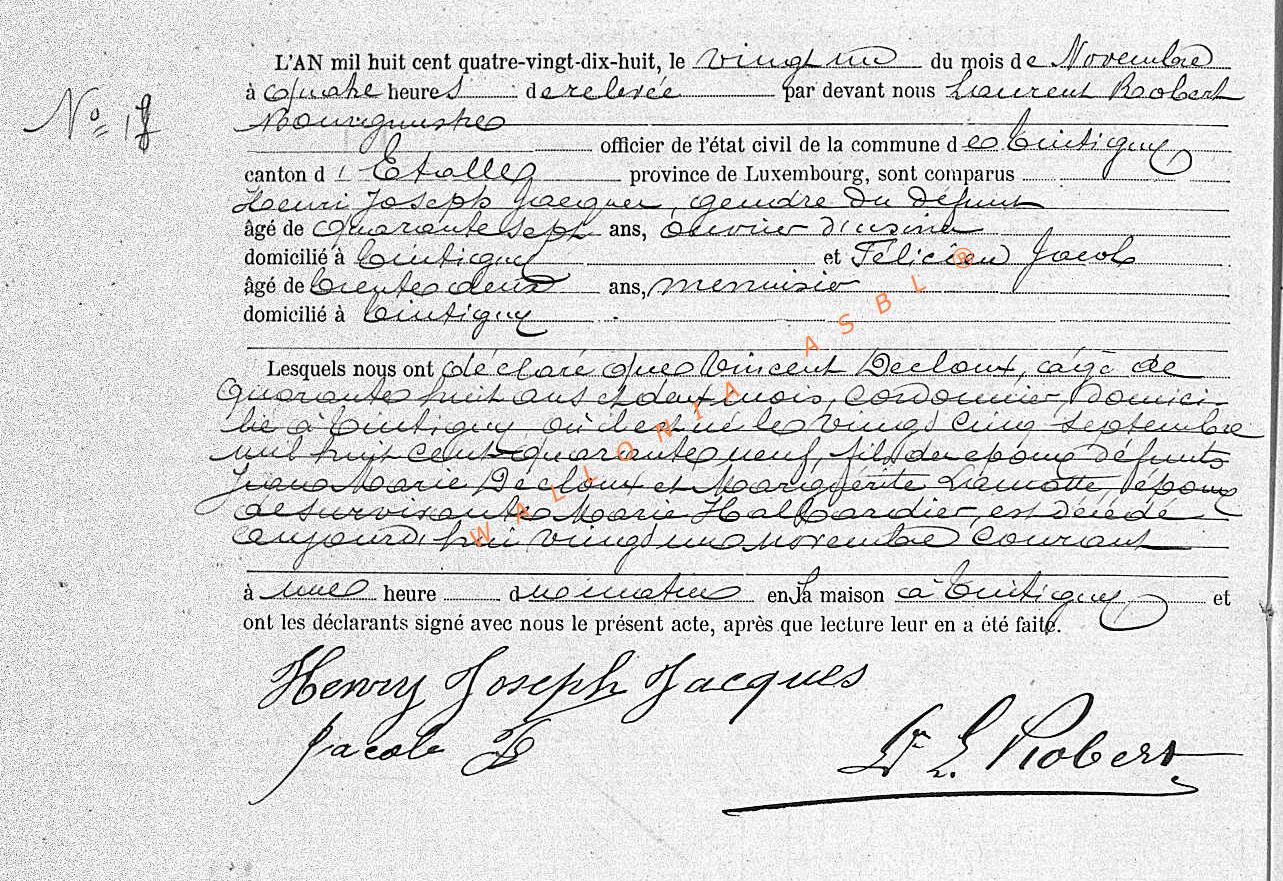 L'AN mil huit cent quatre-vingt-dix-huit, le vingt un du mois de Novembre
N° 18
à quatre heures de relevée par devant nous Laurent Robert
Bourgmestre
officier de l'état civil de la commune de Tintigny
canton d'Etalle province de Luxembourg, sont comparus
Henri Joseph Jacques, gendre du défunt
âgé de quarante sept ans, ouvrier d'usine
domicilié à Tintigny et Félicien Jacob
âgé de trente deux ans, menuisier
domicilié à Tintigny
Lesquels nous ont déclaré que Vincent Decloux, âgé de
quarante huit ans et deux mois, cordonnier, domici-
lié à Tintigny où il est né le vingt cinq septembre
mil huit cent quarante neuf, fils des époux défunts
Jean Marie Decloux et Marguérite Lamotte, époux
de survivante Marie Hallardier, est décédé
aujourd'hui vingt un novembre courant
à une heure du matin en sa maison à Tintigny et
ont les déclarants signé avec nous le présent acte, après que lecture leur en a été faite.
WALLONIA ASBL ®
Henry Joseph Jacques
Jacob F
Dr L. Robert